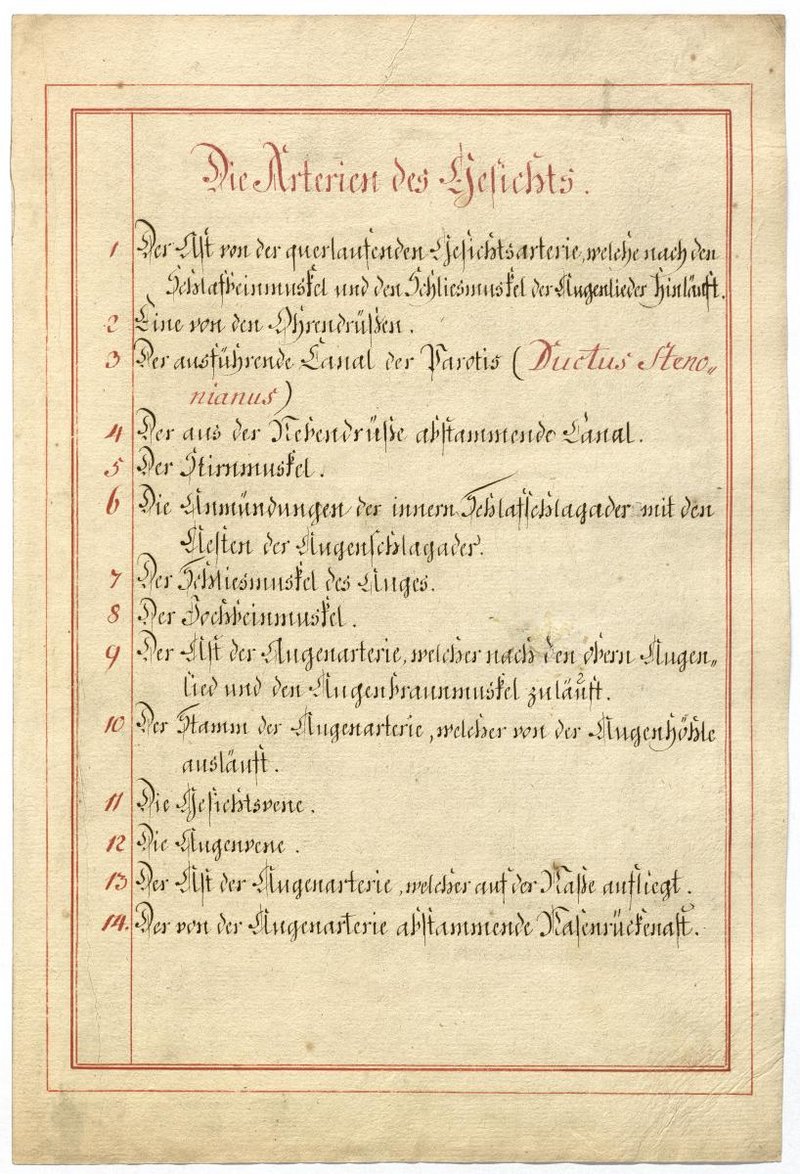 Die Arterien des Gesichts.
1 Der Ast von der querlaufenden Gesichtsarterie, welche nach den
Schlafbeinmuskel und den Schliesmuskel der Augenlieder hinläuft.
2 Eine von den Ohrendrüßen.
3 Der ausführende Canal der Parotis (Ductus Steno„
nianus)
4 Der aus der Nebendrüße abstammende Canal.
5 Der Stirnmuskel.
6 Die Anmündungen der innern Schlafschlagader mit den
Aesten der Augenschlagader.
7 Der Schliesmuskel des Auges.
8 Der Jochbeinmuskel.
9 Der Ast der Augenarterie, welcher nach den obern Augen„
lied und den Augenbraunmuskel zuläuft.
10 Der Stamm der Augenarterie, welcher von der Augenhöhle
ausläuft.
11 Die Gesichtsvene.
12 Die Augenvene.
13 Der Ast der Augenarterie, welcher auf der Naße aufliegt.
14. Der von der Augenarterie abstammende Nasenrückenast.